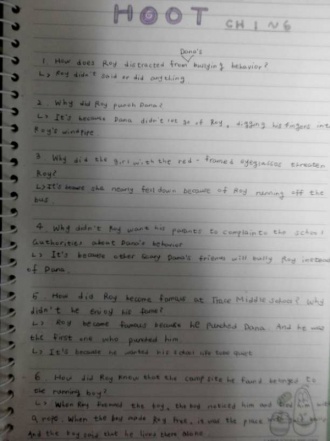 HOOT CH 1~6
Dana's
1. How does Roy distracted from bullying behavior?
↳ Roy didn't said or did anything.
2. Why did Roy punch Dana?
↳ It's because Dana didn't let go of Roy, digging his fingers into
Roy's windpipe
3. Why did the girl with the red-framed eyeglasses threaten
Roy?
↳ It's because she nearly fell down because of Roy running off the
bus.
4. Why didn't Roy want his parents to complain to the school
authorities about Dana's behavior
↳ It's because other Dana's friends will bully Roy instead
of Dana.
5. How did Roy become famous at Trace Middle School? Why
didn't he enjoy his fame?
↳ Roy become famous because he punched Dana. And he was
the first one who punched him.
↳ It's because he wanted his school life quiet
6. How did Roy know that the campsite he found belonged to
the running boy?
↳ When Roy the boy, the boy noticed him and
a rope. When the boy made Roy it was the place
And the boy said that he lives there alone